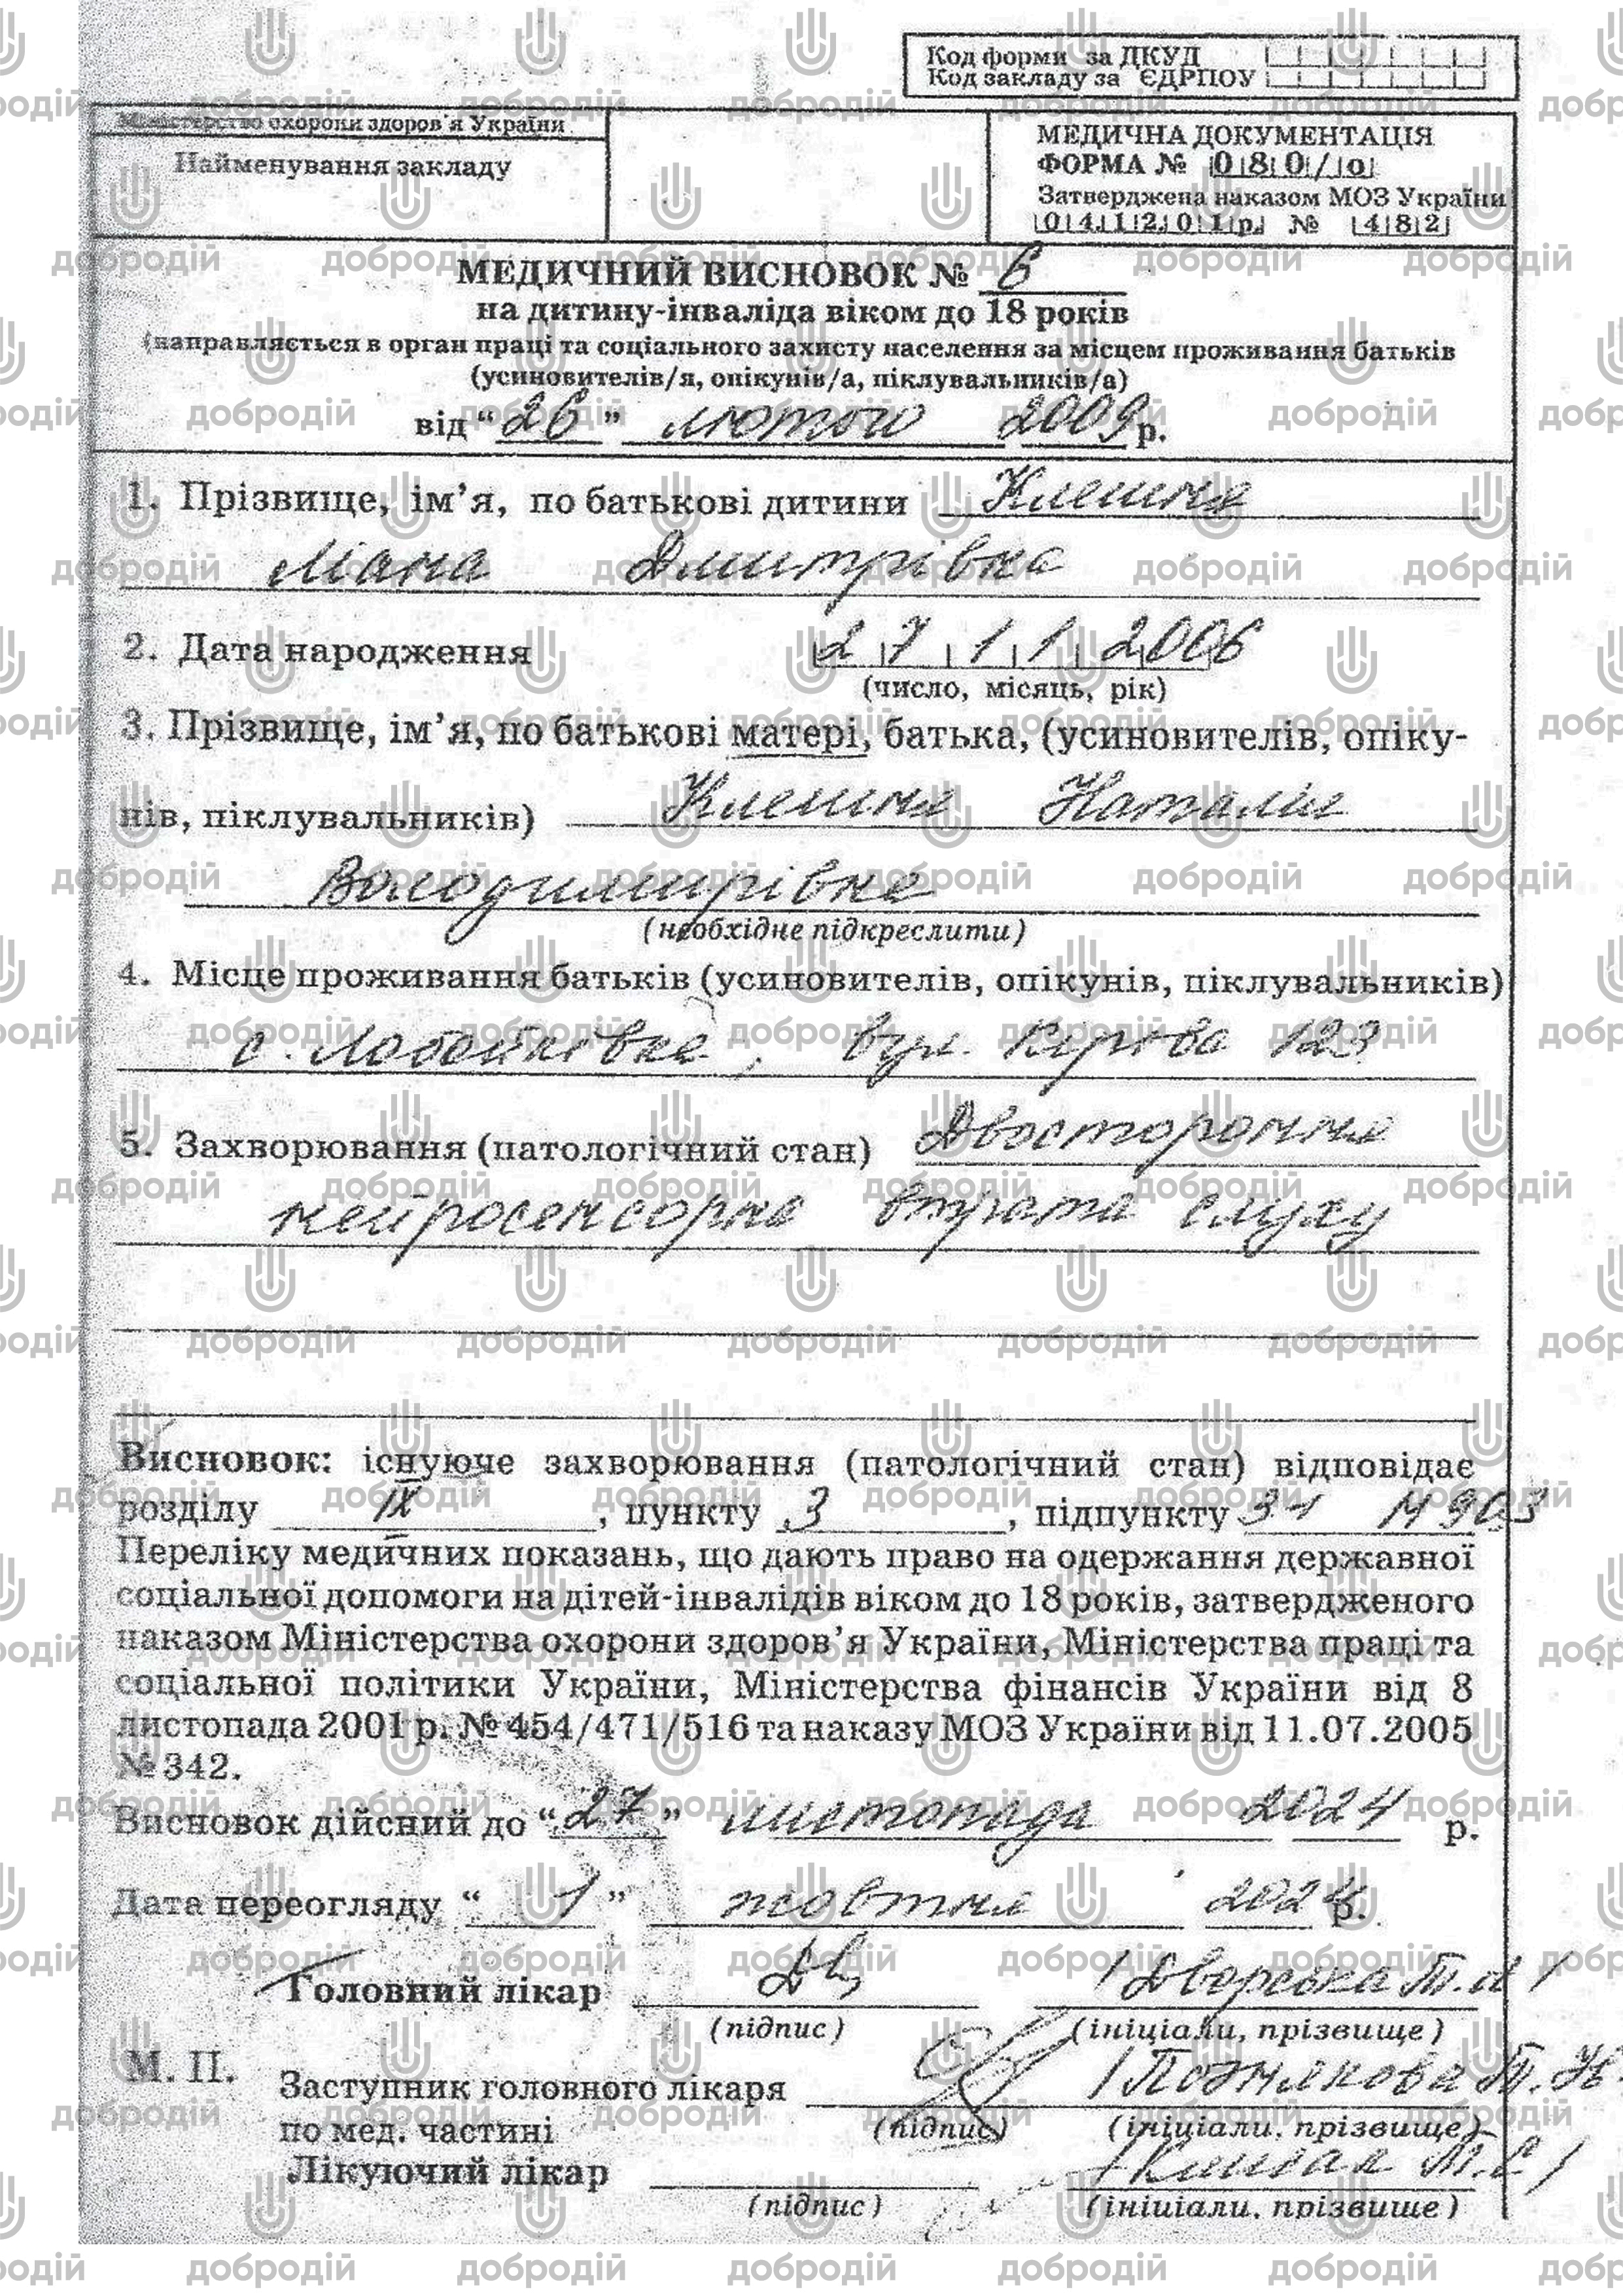 Код форми за ДКУД
Код закладу за ЄДРПОУ
Міністерство охорони здоров'я України
Найменування закладу
МЕДИЧНА ДОКУМЕНТАЦІЯ
ФОРМА № 080/о
Затверджена наказом МОЗ України
041201р. № 482
МЕДИЧНИЙ ВИСНОВОК № 6
на дитину-інваліда віком до 18 років
(направляється в орган праці та соціального захисту населення за місцем проживання батьків
(усиновителів/я, опікунів/а, піклувальників/а)
від “26” лютого 2009р.
1. Прізвище, ім’я, по батькові дитини Клешня
Діана Дмитрівна
2. Дата народження 27 11 2006
(число, місяць, рік)
3. Прізвище, ім’я, по батькові матері, батька, (усиновителів, опіку-
нів, піклувальників) Клешня Наталія
Володимирівна
(необхідне підкреслити)
4. Місце проживання батьків (усиновителів, опікунів, піклувальників)
с. Лобойківка, вул. Кірова 123
5. Захворювання (патологічний стан) Двостороння
нейросенсорна втрата слуху
Висновок: існуюче захворювання (патологічний стан) відповідає
розділу IX, пункту 3, підпункту 31 Н 90,3
Переліку медичних показань, що дають право на одержання державної
соціальної допомоги на дітей-інвалідів віком до 18 років, затвердженого
наказом Міністерства охорони здоров’я України, Міністерства праці та
соціальної політики України, Міністерства фінансів України від 8
листопада 2001 р. № 454/471/516 та наказу МОЗ України від 11.07.2005
№ 342.
Висновок дійсний до “27” листопада 2024 р.
Дата переогляду “1” жовтня 2024р.
Головний лікар /Дворська Т.
(підпис) (ініціали, прізвище)
М. П.
Заступник головного лікаря /Познякова Т.Н.
по мед. частині (підпис) (ініціали, прізвище)
Лікуючий лікар
(підпис) (ініціали, прізвище)
добродій